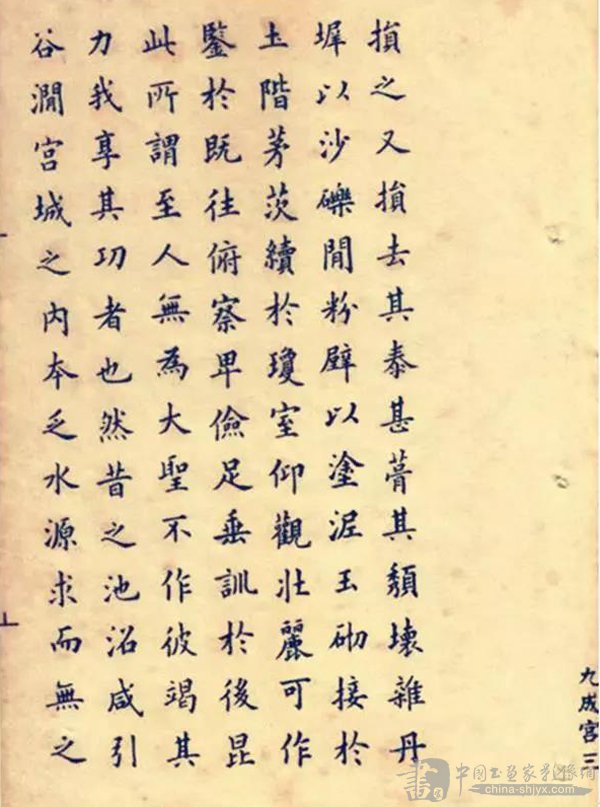 損之又損去其泰甚葺其頹壞雜丹
墀以沙礫閒粉壁以塗泥玉砌接於
土階茅茨續於瓊室仰觀壯麗可作
鑒於既往俯察卑儉足垂訓於後昆
此所謂至人無為大聖不作彼竭其
力我享其功者也然昔之池沼咸引
谷澗宮城之內本乏水源求而無之
九成宮三
書
中国书画家影像网
china-shjyx.com